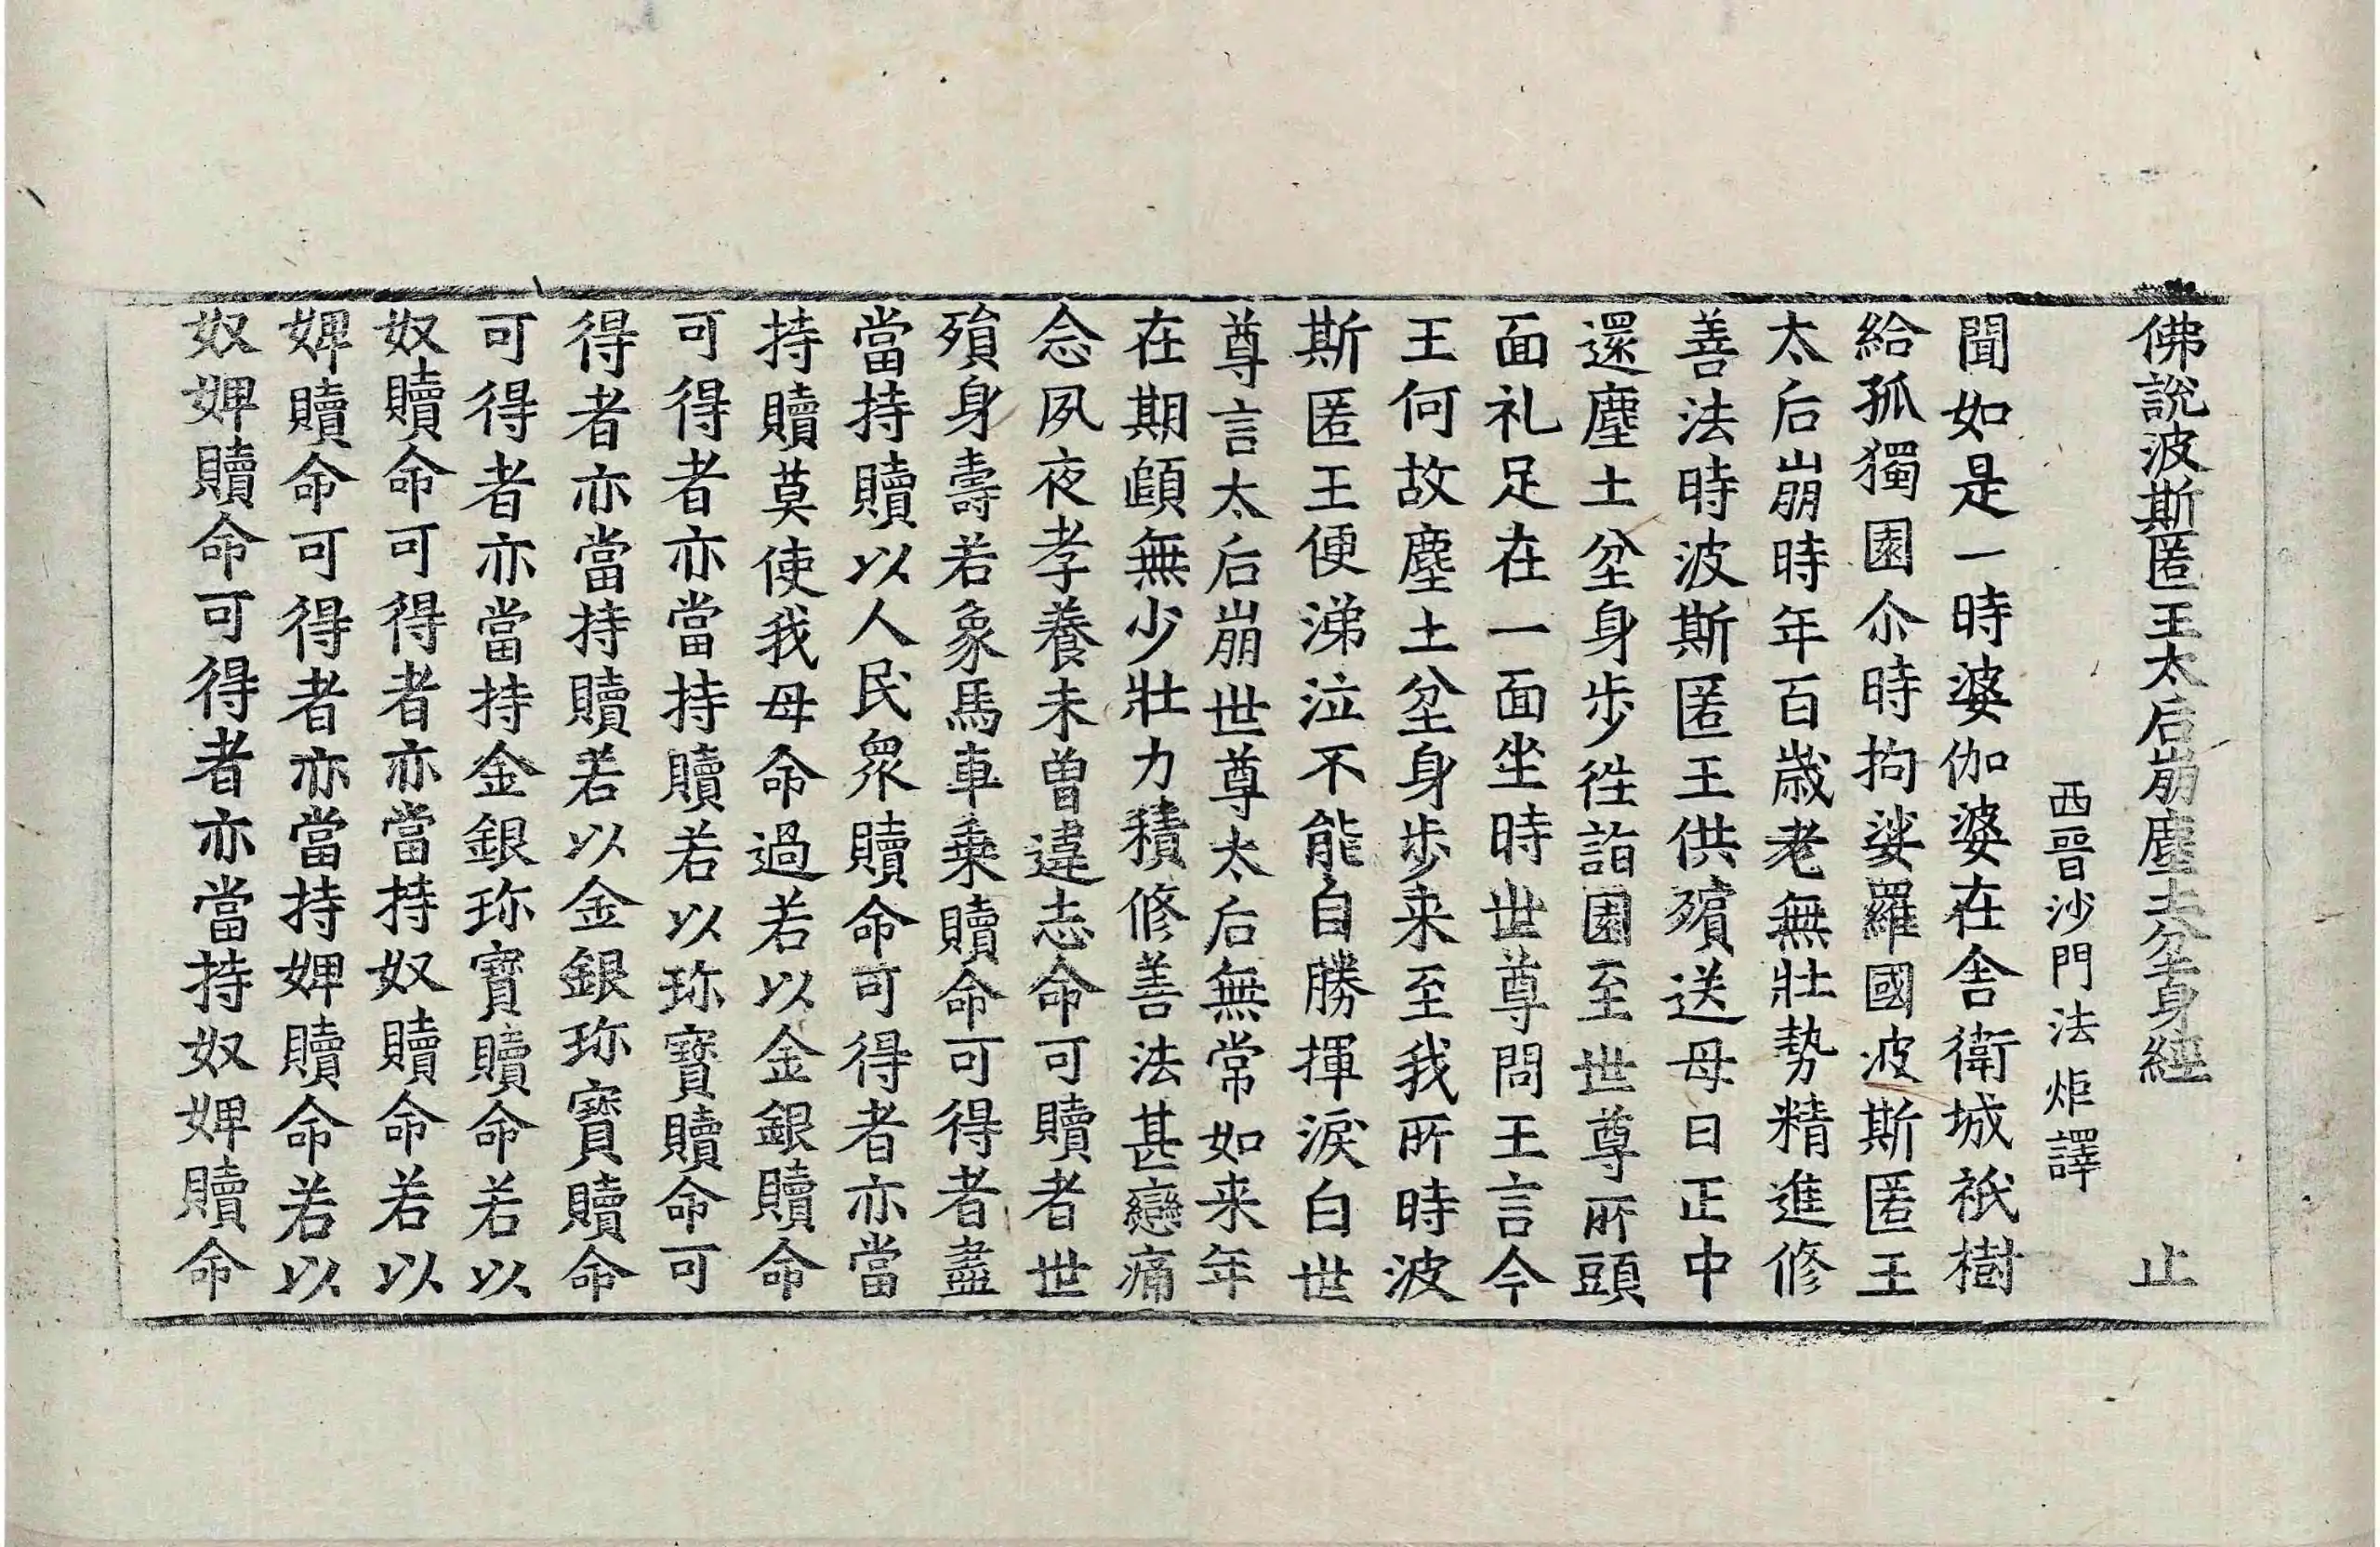 佛說波斯匿王太后崩塵土坌身經　止
西晉沙門法炬譯
聞如是一時婆伽婆在舍衛城祇樹
給孤獨園尒時拘娑羅國波斯匿王
太后崩時年百歲老無壯勢精進修
善法時波斯匿王供殯送母日正中
還塵土坌身步徃詣園至世尊所頭
面礼足在一面坐時世尊問王言今
王何故塵土坌身步来至我所時波
斯匿王便涕泣不能自勝揮淚白世
尊言太后崩世尊太后無常如来年
在期頤無少壯力積修善法甚戀痛
念夙夜孝養未曾違志命可贖者世
殞身壽若象馬車乗贖命可得者盡
當持贖以人民眾贖命可得者亦當
持贖莫使我母命過若以金銀贖命
可得者亦當持贖若以珎寶贖命可
得者亦當持贖若以金銀珎寶贖命
可得者亦當持金銀珎寶贖命若以
奴贖命可得者亦當持奴贖命若以
婢贖命可得者亦當持婢贖命若以
奴婢贖命可得者亦當持奴婢贖命